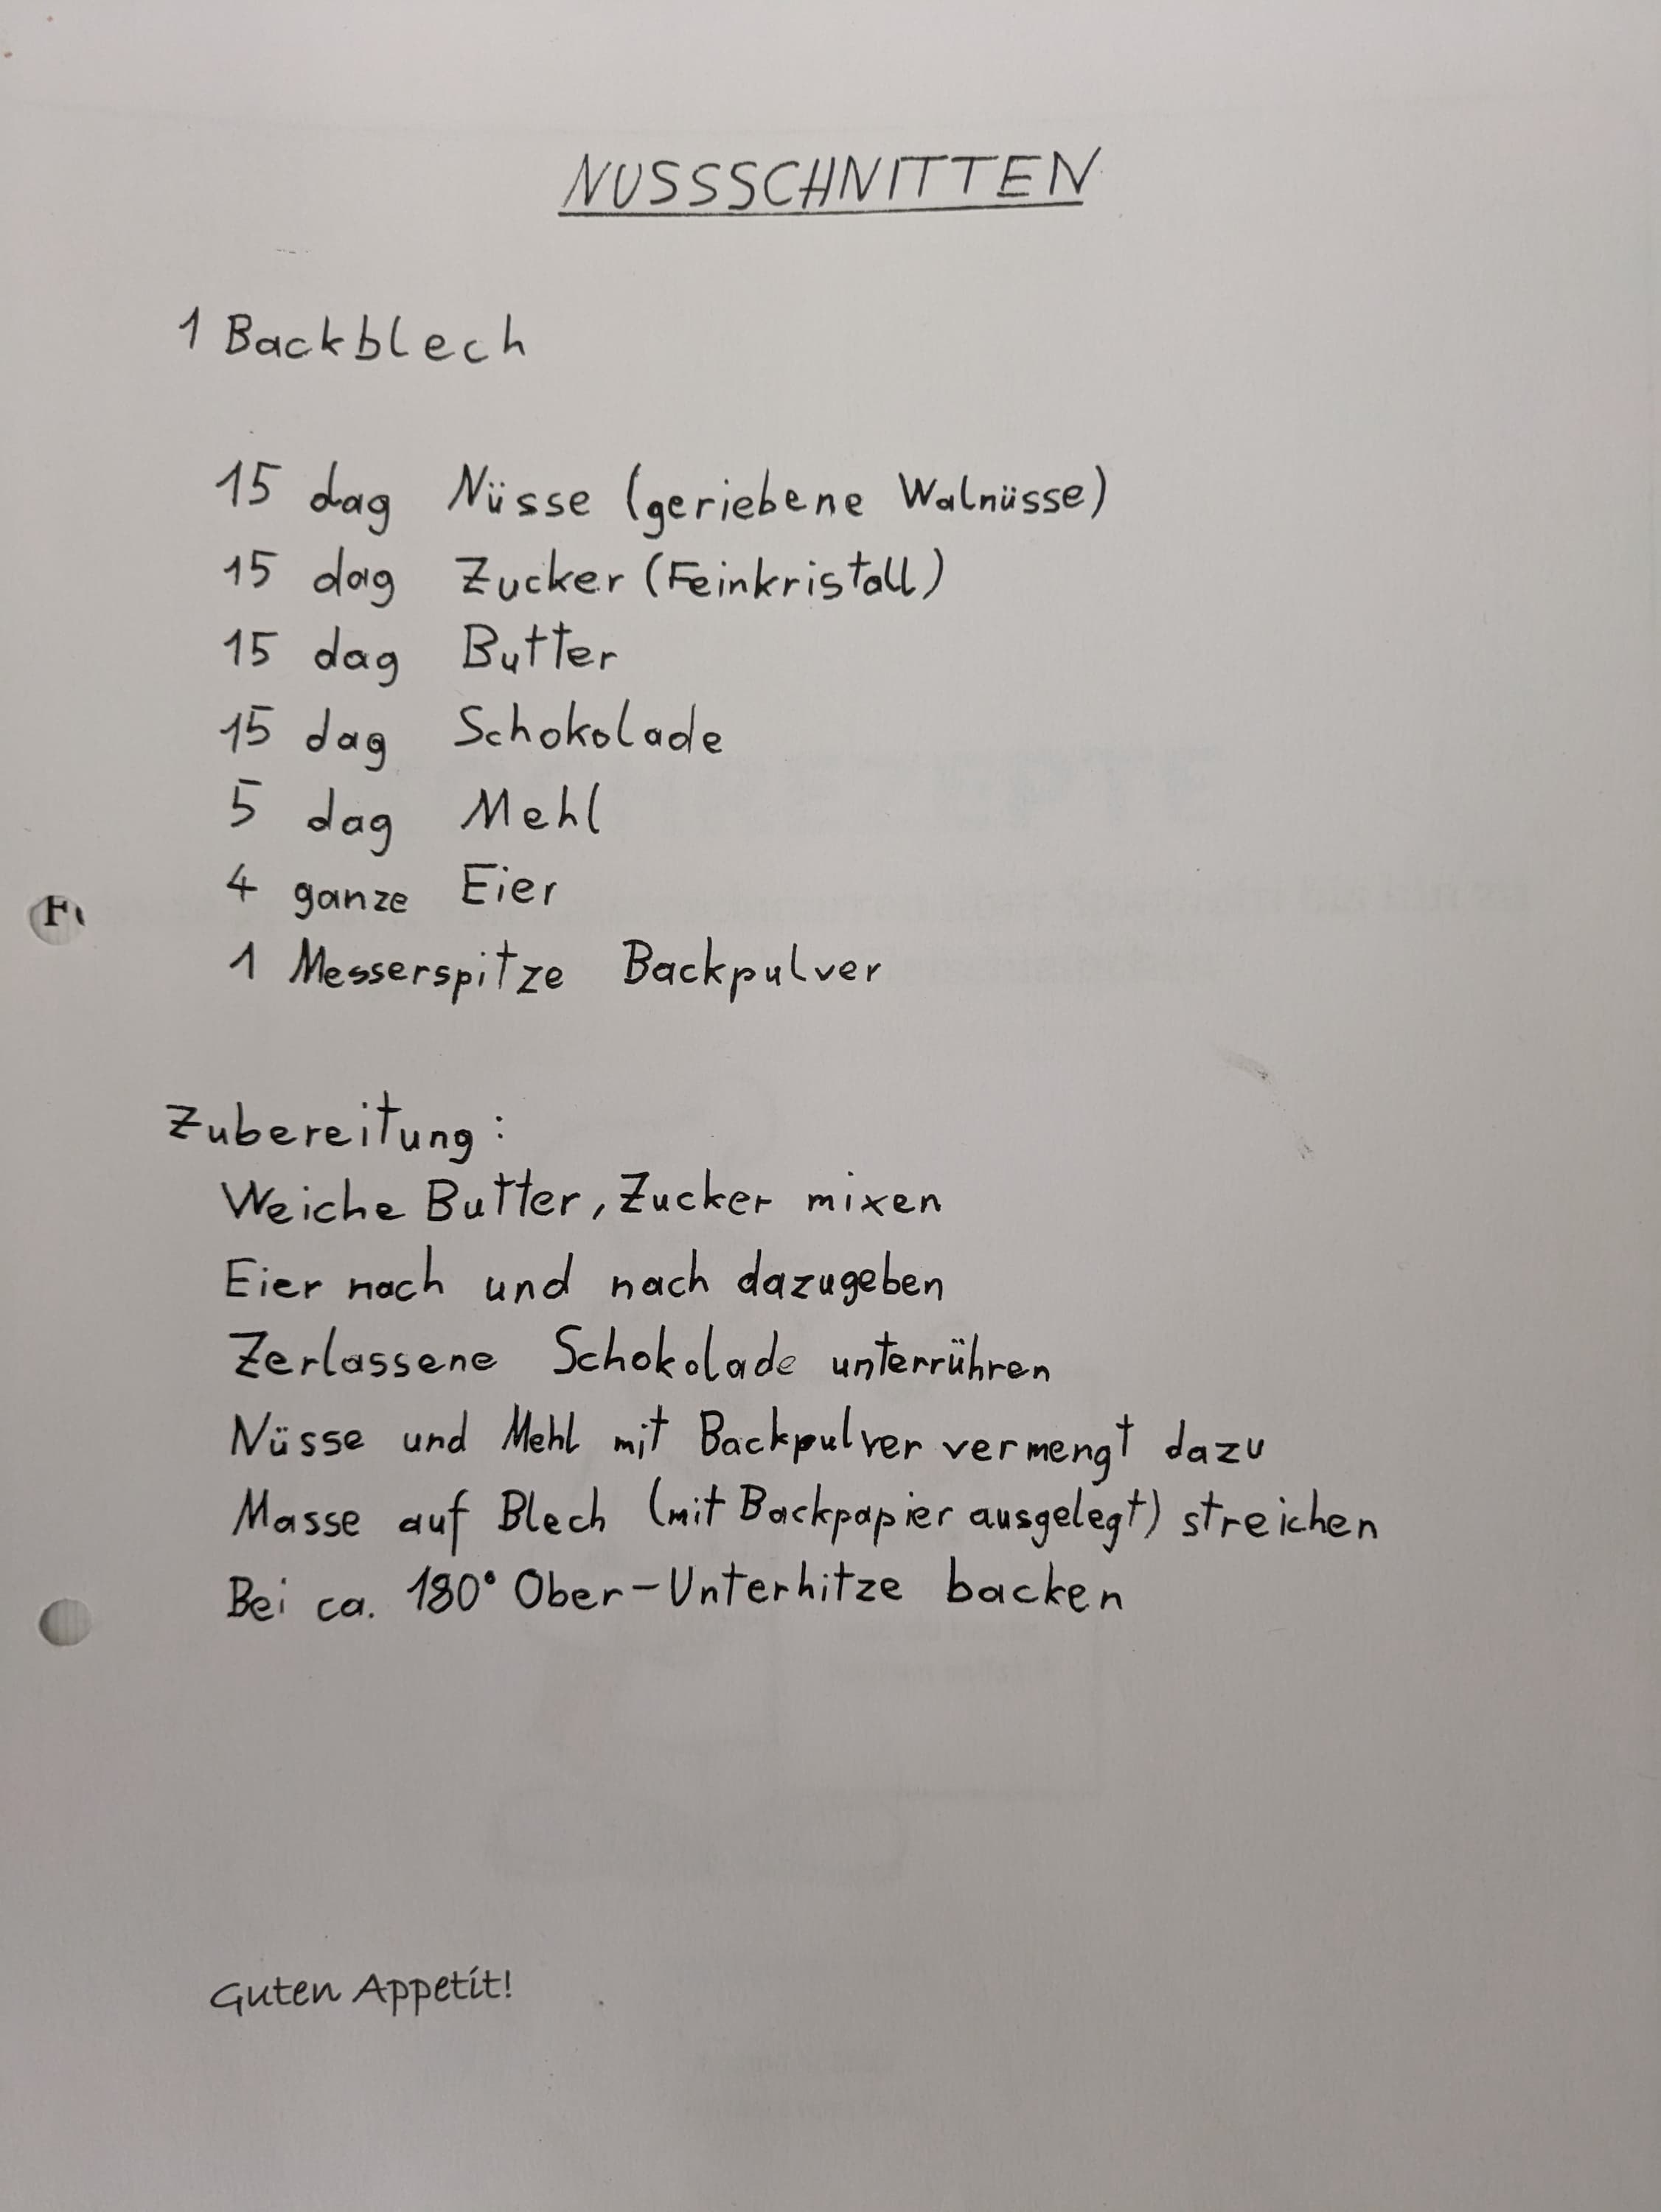 NUSSSCHNITTEN
1 Backblech
15 dag Nüsse (geriebene Walnüsse)
15 dag Zucker (Feinkristall)
15 dag Butter
15 dag Schokolade
5 dag Mehl
4 ganze Eier
1 Messerspitze Backpulver
Zubereitung:
Weiche Butter, Zucker mixen
Eier nach und nach dazugeben
Zerlassene Schokolade unterrühren
Nüsse und Mehl mit Backpulver vermengt dazu
Masse auf Blech (mit Backpapier ausgelegt) streichen
Bei ca. 180° Ober-Unterhitze backen
Guten Appetit!